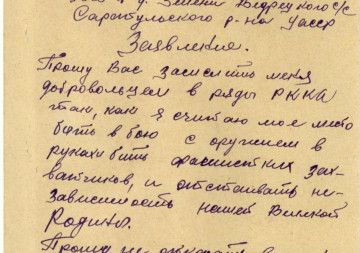 д. Зелени Ведрецкого с/с
Сарапульского р-на УАССР
Заявление.
Прошу Вас зачислить меня
добровольцем в ряды РККА
так, как я считаю мое место
быть в бою с оружием в
руках бить фашистких зах-
ватчиков, и отстаивать не-
зависимость нашей Великой
Родины.
Прошу не отказать в